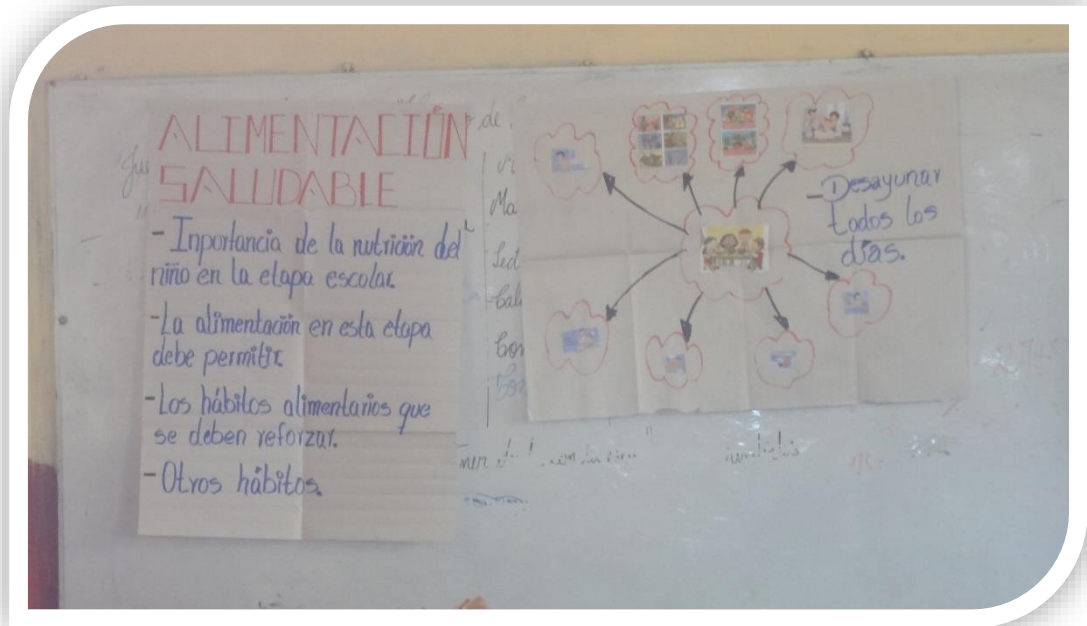 ALIMENTACIÓN
SALUDABLE
- Inportancia de la nutrición del
niño en la etapa escolar.
- La alimentación en esta etapa
debe permitir.
- Los hábitos alimentarios que
se deben reforzar.
- Otros hábitos.
- Desayunar
todos los
días.
de
Ma